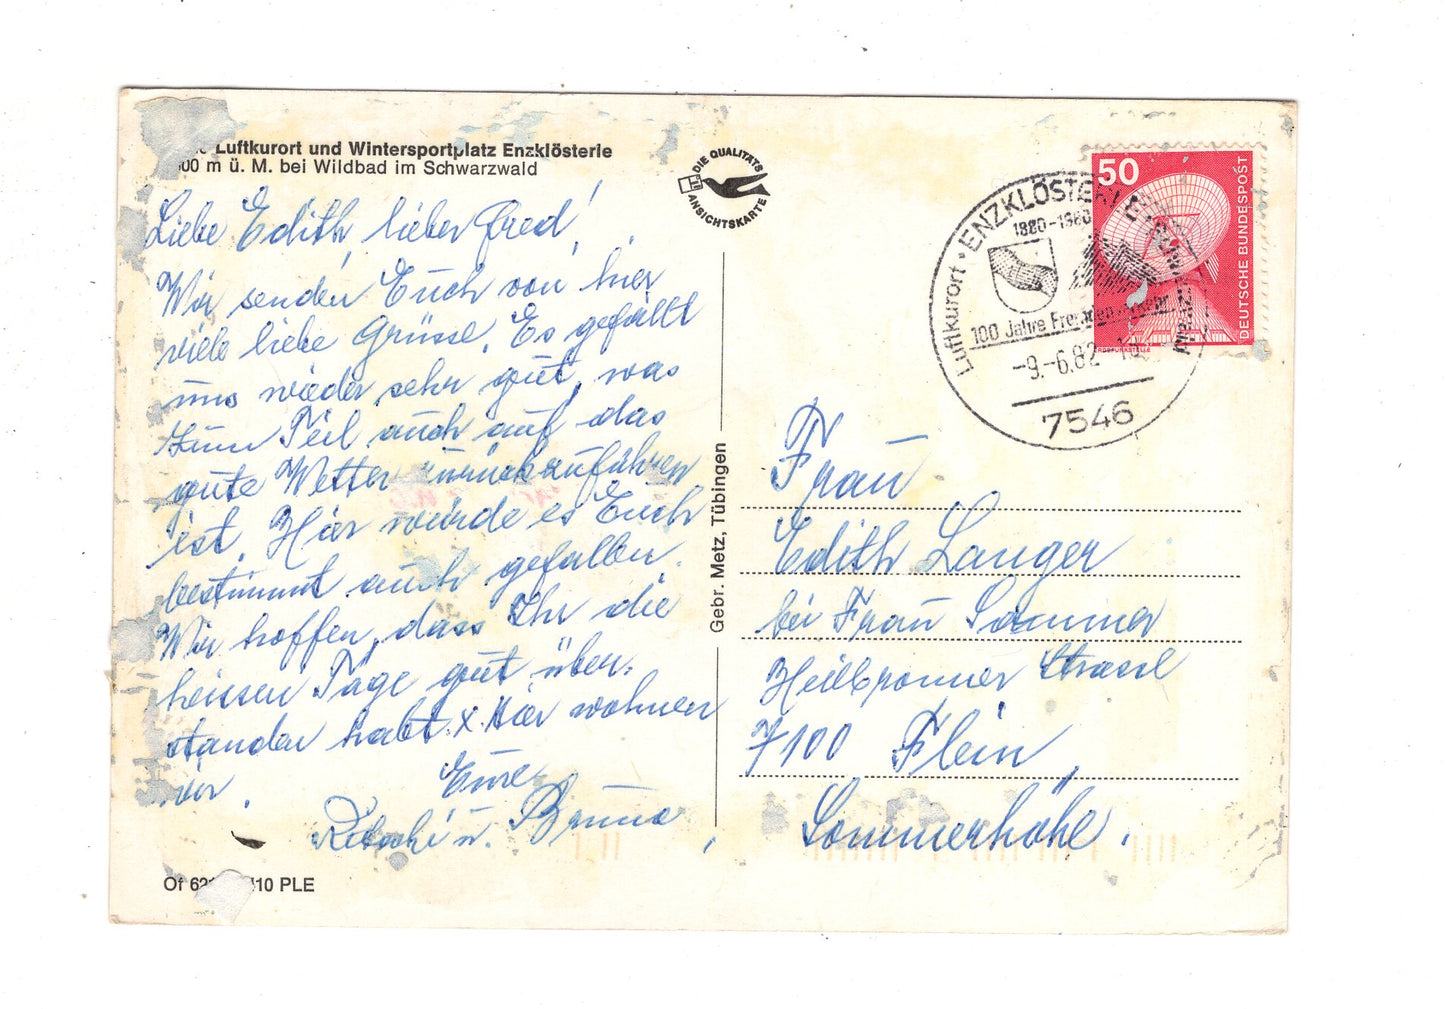 Luftkurort und Wintersportplatz Enzklösterle
00 m ü. M. bei Wildbad im Schwarzwald
DIE QUALITÄTS
ANSICHTSKARTE
Liebe Edith, lieber Fred!
Wir senden Euch von hier
viele liebe Grüsse. Es gefällt
uns wieder sehr gut, was
zum Teil auch auf das
gute Wetter zurückzuführen
ist. Hier würde es Euch
bestimmt auch gefallen.
Wir hoffen, dass Ihr die
heissen Tage gut über-
standen habt. x Hier wohnen
wir.
Eure
u. Bruno
Of 62 10 PLE
Gebr. Metz, Tübingen
50
DEUTSCHE BUNDESPOST
ERDEFUNKSTELLE
Luftkurort · ENZKLÖSTERLE
1880-1980
100 Jahre Fremdenverkehr
-9.-6.82
7546
Frau
Edith Langer
bei Frau Sammer
Heilbronner Strasse
7100 Flein,
Sommerhöhe.